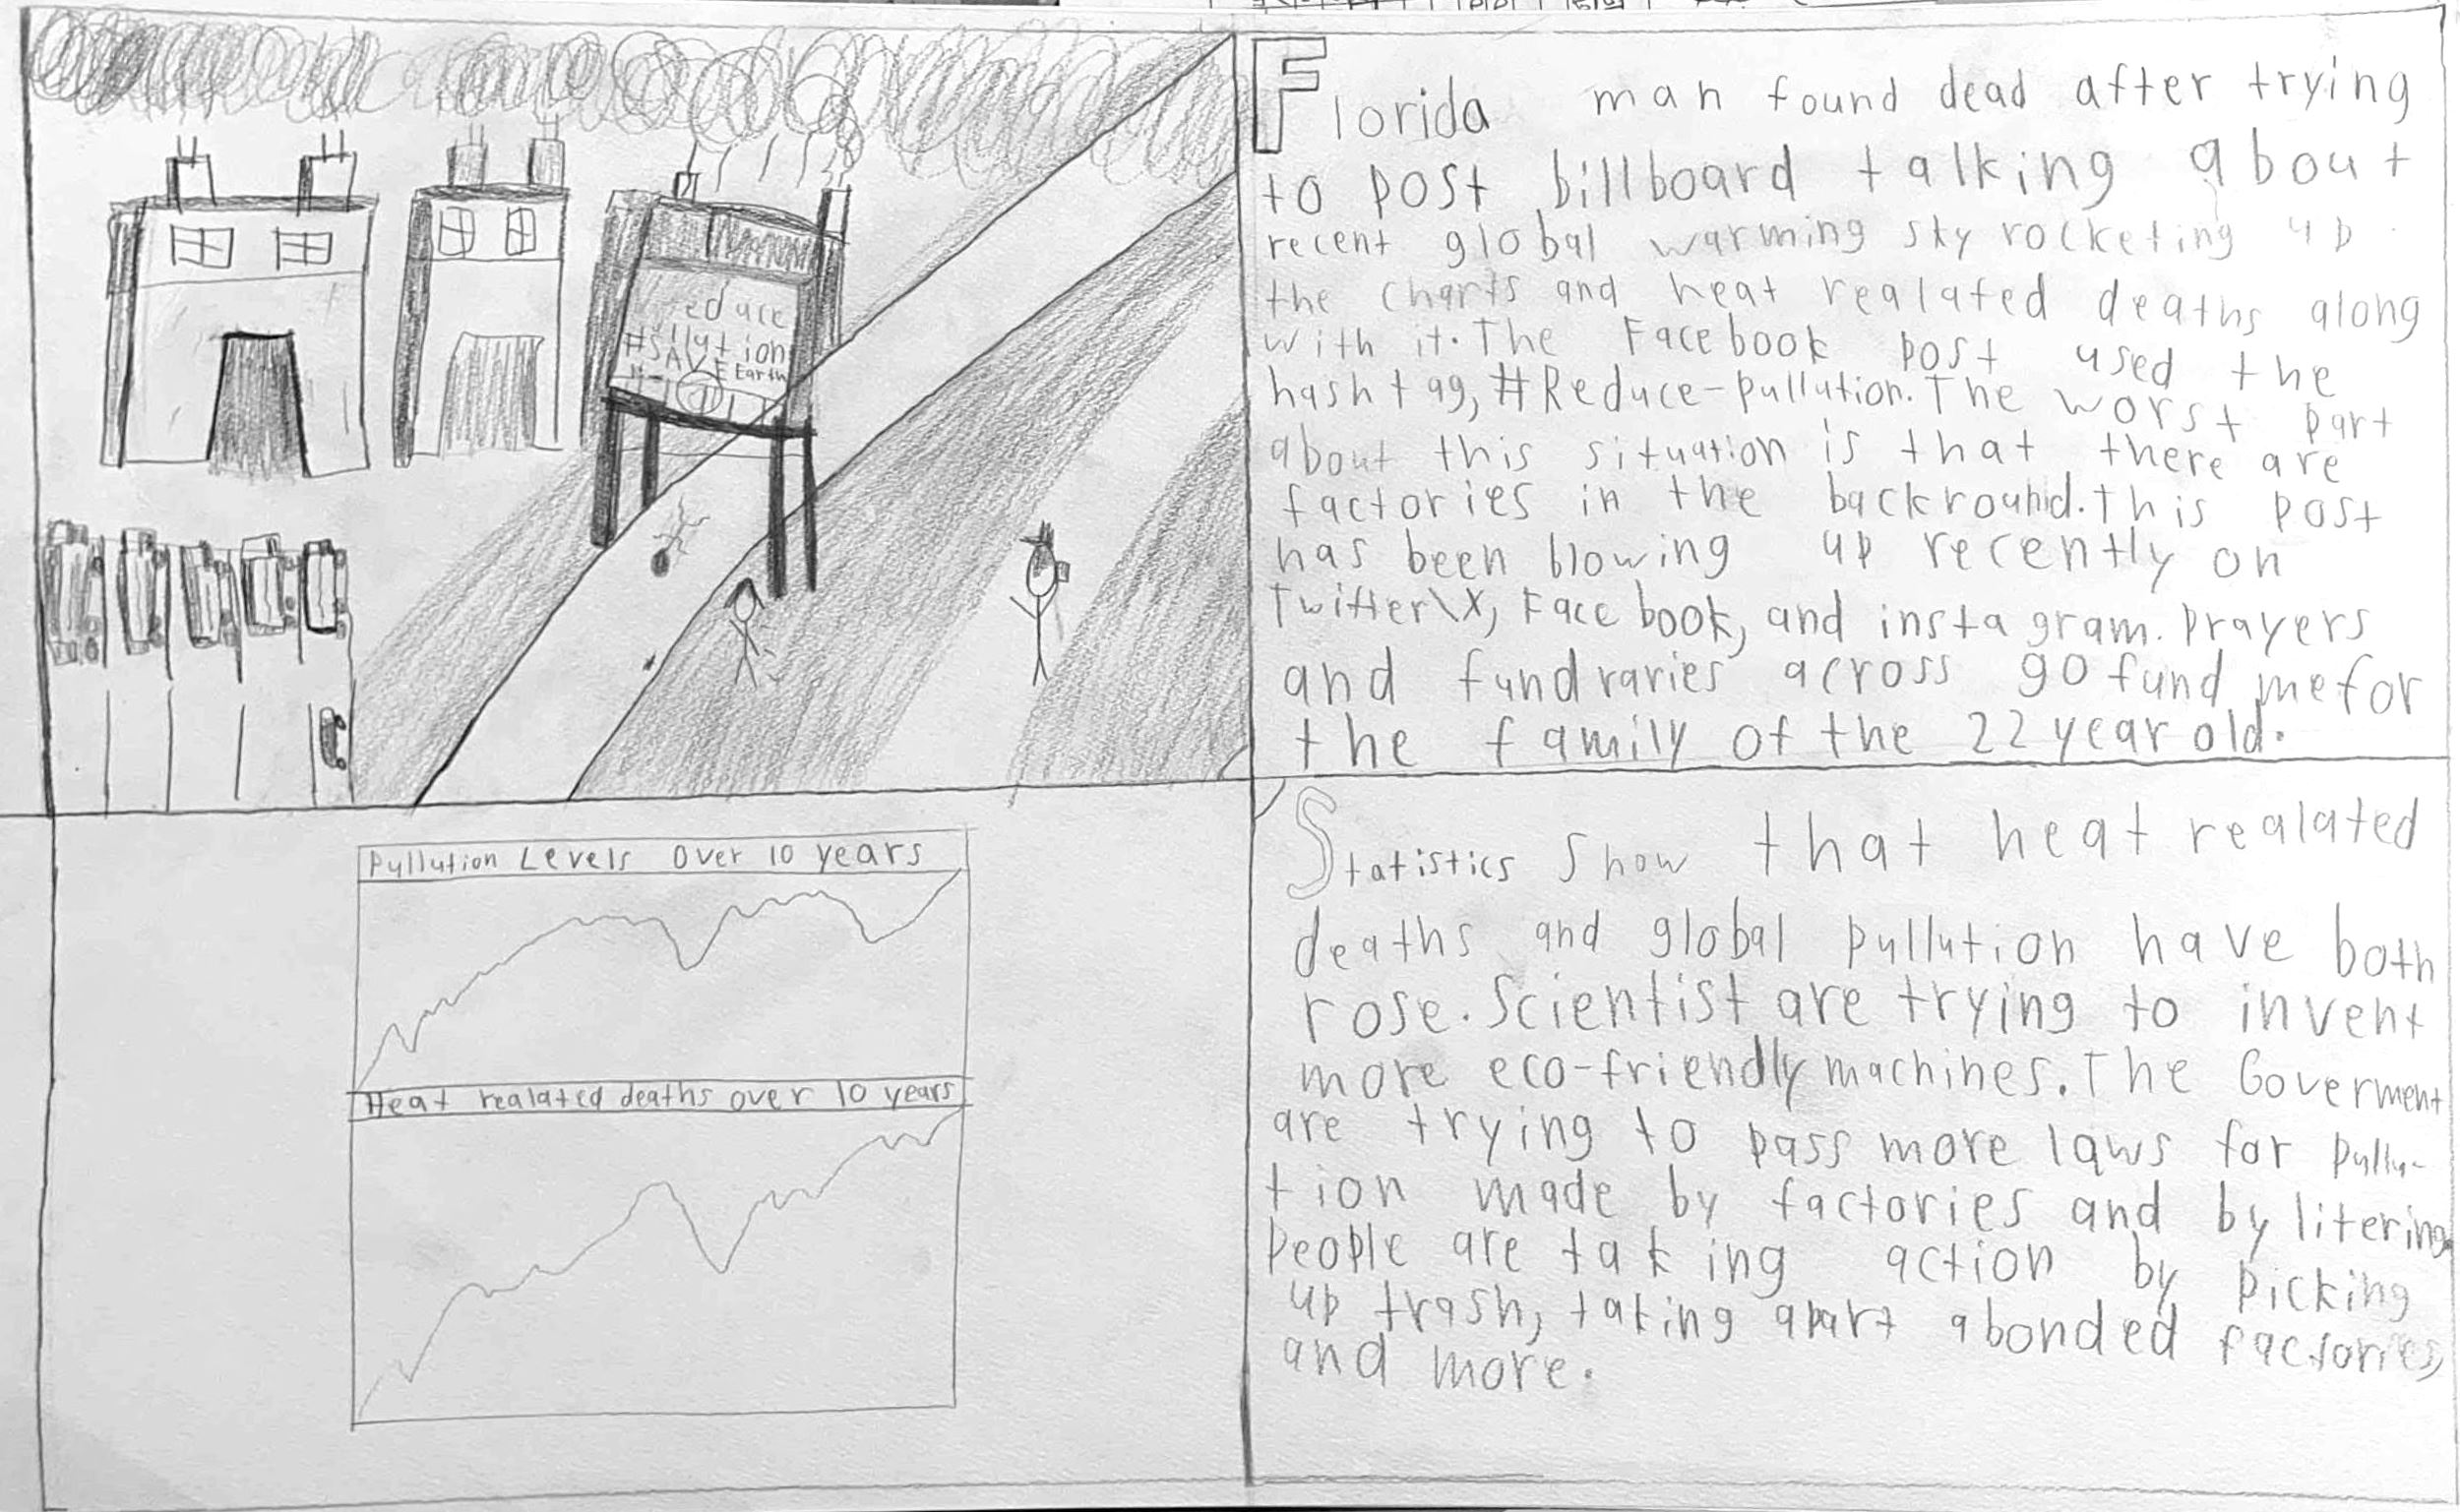 reduce
pullution
#SAVE Earth
Florida man found dead after trying
to post billboard talking about
recent global warming sky rocketing up
the charts and heat realated deaths along
with it. The Facebook post used the
hashtag, #Reduce-pullution. The worst part
about this situation is that there are
factories in the backround. This post
has been blowing up recently on
Twitter\X, Facebook, and instagram. Prayers
and fundraries across gofundme for
the family of the 22 year old.
Pullution Levels Over 10 years
Heat realated deaths over 10 years
Statistics show that heat realated
deaths and global pullution have both
rose. Scientist are trying to invent
more eco-friendly machines. The Goverment
are trying to pass more laws for pullu-
tion made by factories and by litering.
People are taking action by picking
up trash, taking apart abonded factories,
and more.